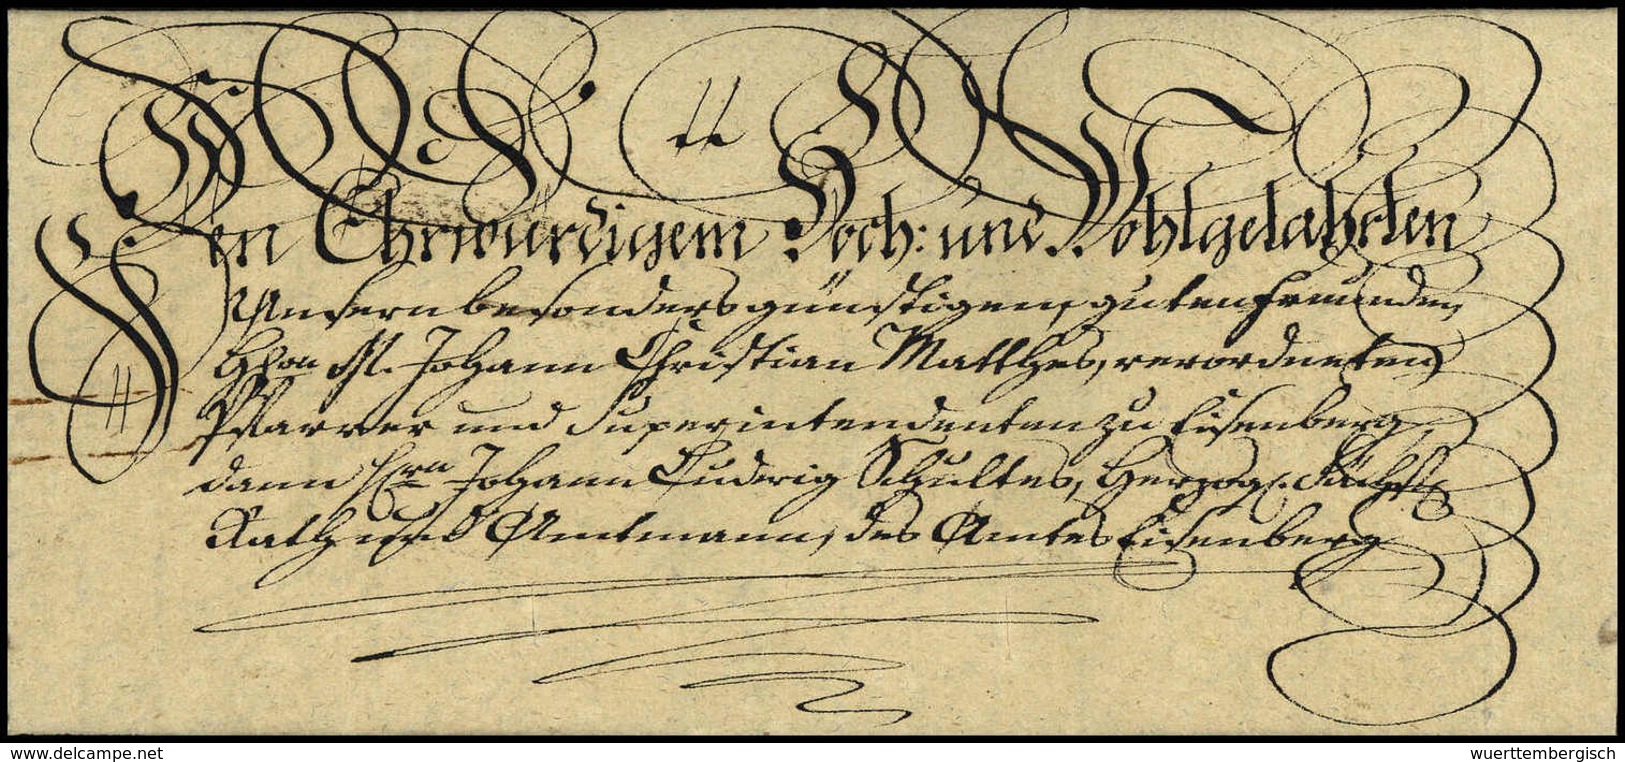 Den Ehrwürdigem Hoch: und Wohlgelahrten
Unsern besonders günstigen, guten Freunden,
Hℓrn M. Johann Christian Matthes, verordneten
Pfarrer und Superintendenten zu Eisenberg,
dann Hrn Johann Ludwig Schultes, Herzogl. Sächß.
Rath und Amtmann, des Amtes Eisenberg
www.delcampe.net
wuerttembergisch